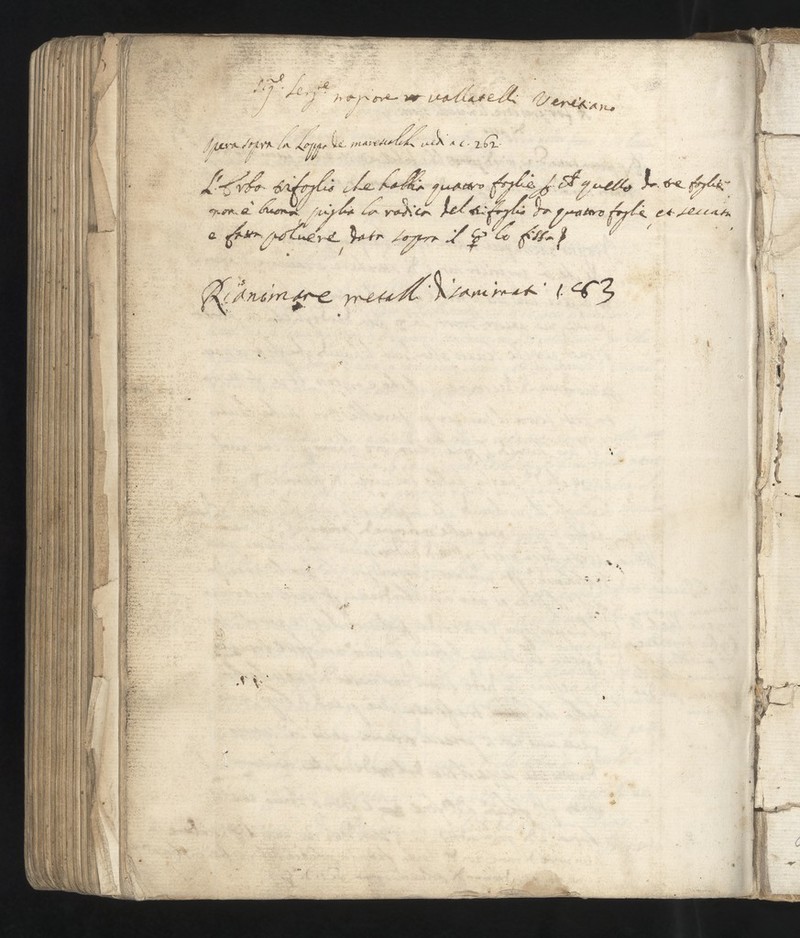 Sig.e Serg.e magiore vallatelli Venetiano
opera sopra la loppa de marescalchi vedi a c. 262
L'Erba trifoglio che habbia quattro foglie quello da tre foglie
non è buona, piglia la radica del trifoglio da quattro foglie, et seccata
e fatta polvere, data sopra il ☿ lo fissa
Rianimare metalli disanimati 163